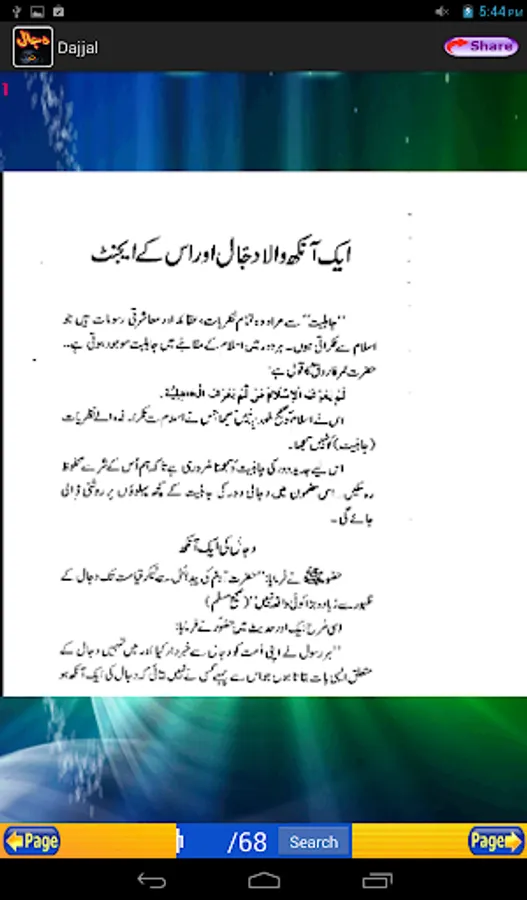 5:44 PM
دجال
Dajjal
Share
1
ایک آنکھ والا دجّال اور اس کے ایجنٹ
"جاہلیت" سے مراد وہ تمام نظریات، عقائد اور معاشرتی رسومات ہیں جو
اسلام سے ٹکراتی ہوں۔ ہر دور میں اسلام کے مقابلے میں جاہلیت موجود ہوتی ہے۔
حضرت عمر فاروقؓ کا قول ہے:
لَمْ يَعْرِفِ الْاِسْلَامَ مَنْ لَّمْ يَعْرِفِ الْجَاهِلِيَّةَ۔
اس نے اسلام کو صحیح طور پر نہیں سمجھا جس نے اسلام سے ٹکرانے والے نظریات
(جاہلیت) کو نہیں سمجھا۔
اس لیے جدید دور کی جاہلیت کو سمجھنا ضروری ہے تاکہ ہم اُس کے شر سے محفوظ
رہ سکیں۔ اسی مضمون میں دجالی دور کی جاہلیت کے کچھ پہلوؤں پر روشنی ڈالی
جائے گی۔
دجال کی ایک آنکھ
حضورﷺ نے فرمایا: "حضرت آدم کی پیدائش سے لیکر قیامت تک دجال کے
ظہور سے زیادہ بڑا کوئی واقعہ نہیں" (صحیح مسلم)
اسی طرح ایک اور حدیث میں حضورؐ نے فرمایا:
"ہر رسول نے اپنی اُمت کو دجال سے خبردار کیا اور میں تمہیں دجال کے
متعلق ایسی بات بتاتا ہوں جو اس سے پہلے کسی نے نہیں بتائی کہ دجال کی ایک آنکھ ہو
Page
/68
Search
Page